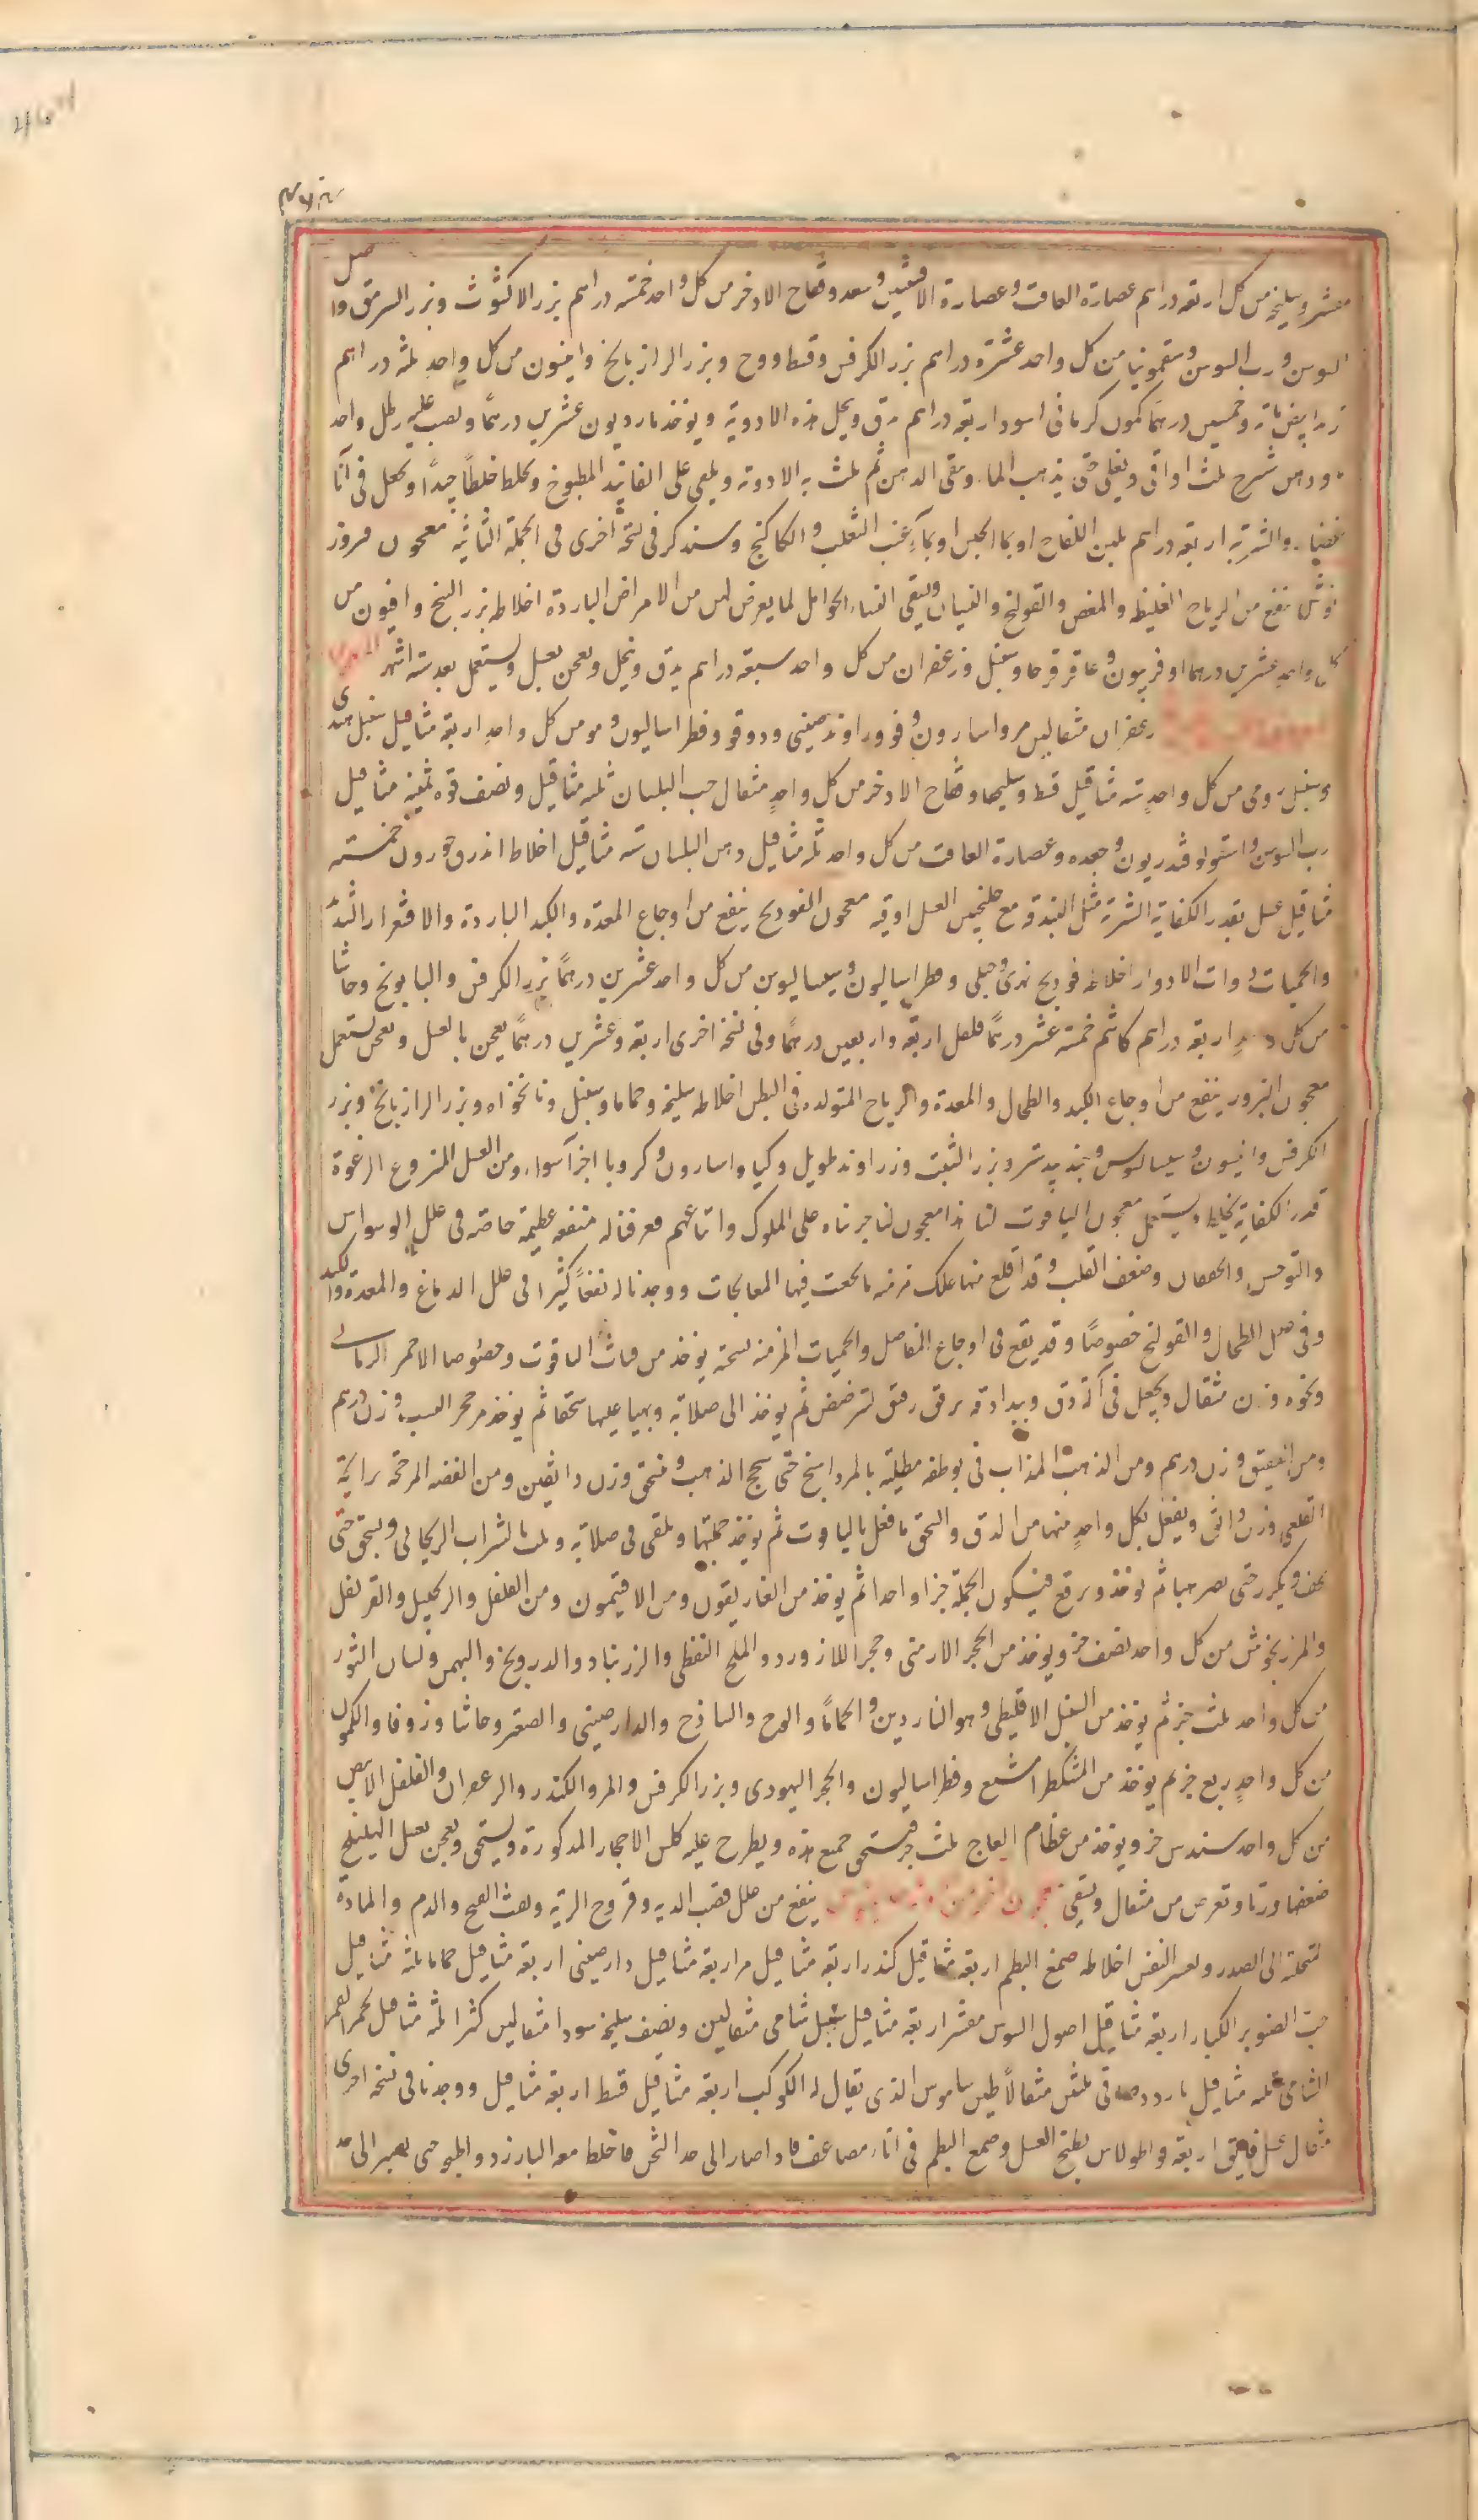 مقشر وسليخه من كل اربعه دراهم عصارة الغافت وعصارة الافسنتين وسعد وفقاح الاذخر من كل واحد خمسة دراهم بزر الاكشوث وبزر السرمق واصل
السوس ورب السوس وسقمونيا من كل واحد عشرة دراهم بزر الكرفس وقسط ووج وبزر الرازيانج وانيسون من كل واحد ثلثه دراهم
وخمسين درهما كمون كرمانى اسود اربعه دراهم يدق وينخل هذه الادوية ويوخذ مازريون عشرين درهما ويصب عليه رطل واحد
ودهن شيرج ثلث اواقى ويغلى حتى يذهب الماء ويبقى الدهن ثم يلت به الادويه ويلقى على الفانيد المطبوخ ويخلط خلطا جيدا ويجعل فى انا
والشربه اربعه دراهم بلبن اللقاح او بما الجبن او بماء عنب الثعلب والكاكنج وسنذكر فى نسخة اخرى فى الجملة الثانية معجون
نوش ينفع من الرياح الغليظه والمغص والقولنج والغثيان ويسقى النساء الحوامل لما يعرض لهن من الامراض الباردة اخلاطه بزر البنج وافيون من
كل واحد عشرين درهما افربيون وعاقرقرحا وسنبل وزعفران من كل واحد سبعه دراهم يدق وينخل ويعجن بعسل ويستعمل بعد سته اشهر
زعفران مثقالين مر واسارون وفو وراوند صينى ودوقو وفطراساليون ومو من كل واحد اربعة مثاقيل سنبل هندى
وسنبل رومى من كل واحد سته مثاقيل قسط وسليخا وفقاح الاذخر من كل واحد مثقال حب البلسان ثلثه مثاقيل ونصف فوه ثمنيه مثاقيل
رب السوس واسقولوقندريون وجعده وعصارة الغافت من كل واحد ثلثه مثاقيل دهن البلسان سته مثاقيل اخلاط اندروخورون خمسه
مثاقيل عسل بقدر الكفاية الشربة مثل البندقه مع خلنجبين العسل اوقيه معجون الفودنج ينفع من اوجاع المعدة والكبد الباردة والاقشعرار الشديد
والحميات ذوات الادوار اخلاطه فودنج نهرى وجبلى وفطراساليون وسيساليوس من كل واحد عشرين درهما بزر الكرفس والبابونج وحاشا
من كل واحد اربعه دراهم كاشم خمسة عشر درهما فلفل اربعه واربعين درهما وفى نسخة اخرى اربعه وعشرين درهما يعجن بالعسل ويعجن يستعمل
معجون البزور ينفع من اوجاع الكبد والطحال والمعدة والرياح المتولده فى البطن اخلاطه سليخه وحماما وسنبل ونانخواه وبزر الرازيانج وبزر
الكرفس وانيسون وسيساليوس وجندبيدستر وبزر الشبت وزراوند طويل وكيا واسارون وكرويا اجزآ سواء ومن العسل المنزوع الرغوة
قدر الكفاية يخلط ويستعمل معجون الياقوت لنا هذا معجون لنا جربناه على الملوك واتباعهم فعرفنا له منفعه عظيمة خاصه فى علل الوسواس
والتوحش والخفقان وضعف القلب وقد اقلع منها علل مزمنه ما نجعت فيها المعالجات ووجدنا له نفعا كثيرا فى علل الدماغ والمعدة والكبد
وفى علل الطحال والقولنج خصوصا وقد ينفع فى اوجاع المفاصل والحميات المزمنه نسخته يوخذ من فتات الياقوت وخصوصا الاحمر الرمانى
ونحوه وزن مثقال ويجعل فى آلة دق ويبدا دقه برفق رفق لترضض ثم يوخذ الى صلاية ويهيا عليها سحقا ثم يوخذ من حجر اليشب وزن درهم
ومن العقيق وزن درهم ومن الذهب المذاب فى بوطقه مطليه بالمرداسنج حتى يسحج الذهب وينسحق وزن دانقين ومن الفضه المرخه برايحة
القلعى وزن دانق ويفعل بكل واحد منهما من الدق والسحق ما فعل بالياقوت ثم يوخذ جملتها وتلقى فى صلاية ويلت بالشراب الريحانى ويسحق حتى
يجف ويكرر حتى يصير هبا ثم يوخذ ويرفع فيكون الجملة جزا واحدا ثم يوخذ من الغاريقون ومن الافتيمون ومن الفلفل والزنجبيل والقرنفل
والمرزنجوش من كل واحد نصف جز ويوخذ من الحجر الارمنى وحجر اللازورد والملح النفطى والزرنباد والدرونج والبهمن ولسان الثور
من كل واحد ثلث جز ثم يوخذ من السنبل الاقليطى وهو الناردين والحماما والوج والساذج والدارصينى والصعتر وحاشا وزوفا والكمون
من كل واحد ربع جز ثم يوخذ من المشكطرامشيع وفطراساليون والحجر اليهودى وبزر الكرفس والمر والكندر والزعفران والفلفل الابيض
من كل واحد سدس جز ويوخذ من عظام العاج ثلث جز فيسحق جميع هذه ويطرح عليه كلس الاحجار المذكورة ويسحق ويعجن بعسل الهليلج
ضعفها وزنا ويقرص من مثقال ويسقى ينفع من علل قصب الريه وقروح الرية ونفث القيح والدم والمادة
المتحلبه الى الصدر وعسر النفس اخلاطه صمغ البطم اربعة مثاقيل كندر اربعة مثاقيل مر اربعة مثاقيل دارصينى اربعة مثاقيل حماما ثلثه مثاقيل
حب الصنوبر الكبار اربعة مثاقيل اصول السوس مقشر اربعة مثاقيل سنبل شامى مثقالين ونصف سليخه سودا مثقالين كثيرا ثلثه مثاقيل لحم التمر
الشامى ثلثه مثاقيل بارزد صافى ثلثين مثقالا طين ساموس الذى يقال له الكوكب اربعة مثاقيل قسط اربعة مثاقيل ووجدنا فى نسخه اخرى
مثقال عسل فايق اربعة قواطولاس يطبخ العسل وصمغ البطم فى اناء مضاعف فاذا صار الى حد الثخن فاخلط معه البارزد واطبخ حتى يصير الى حد